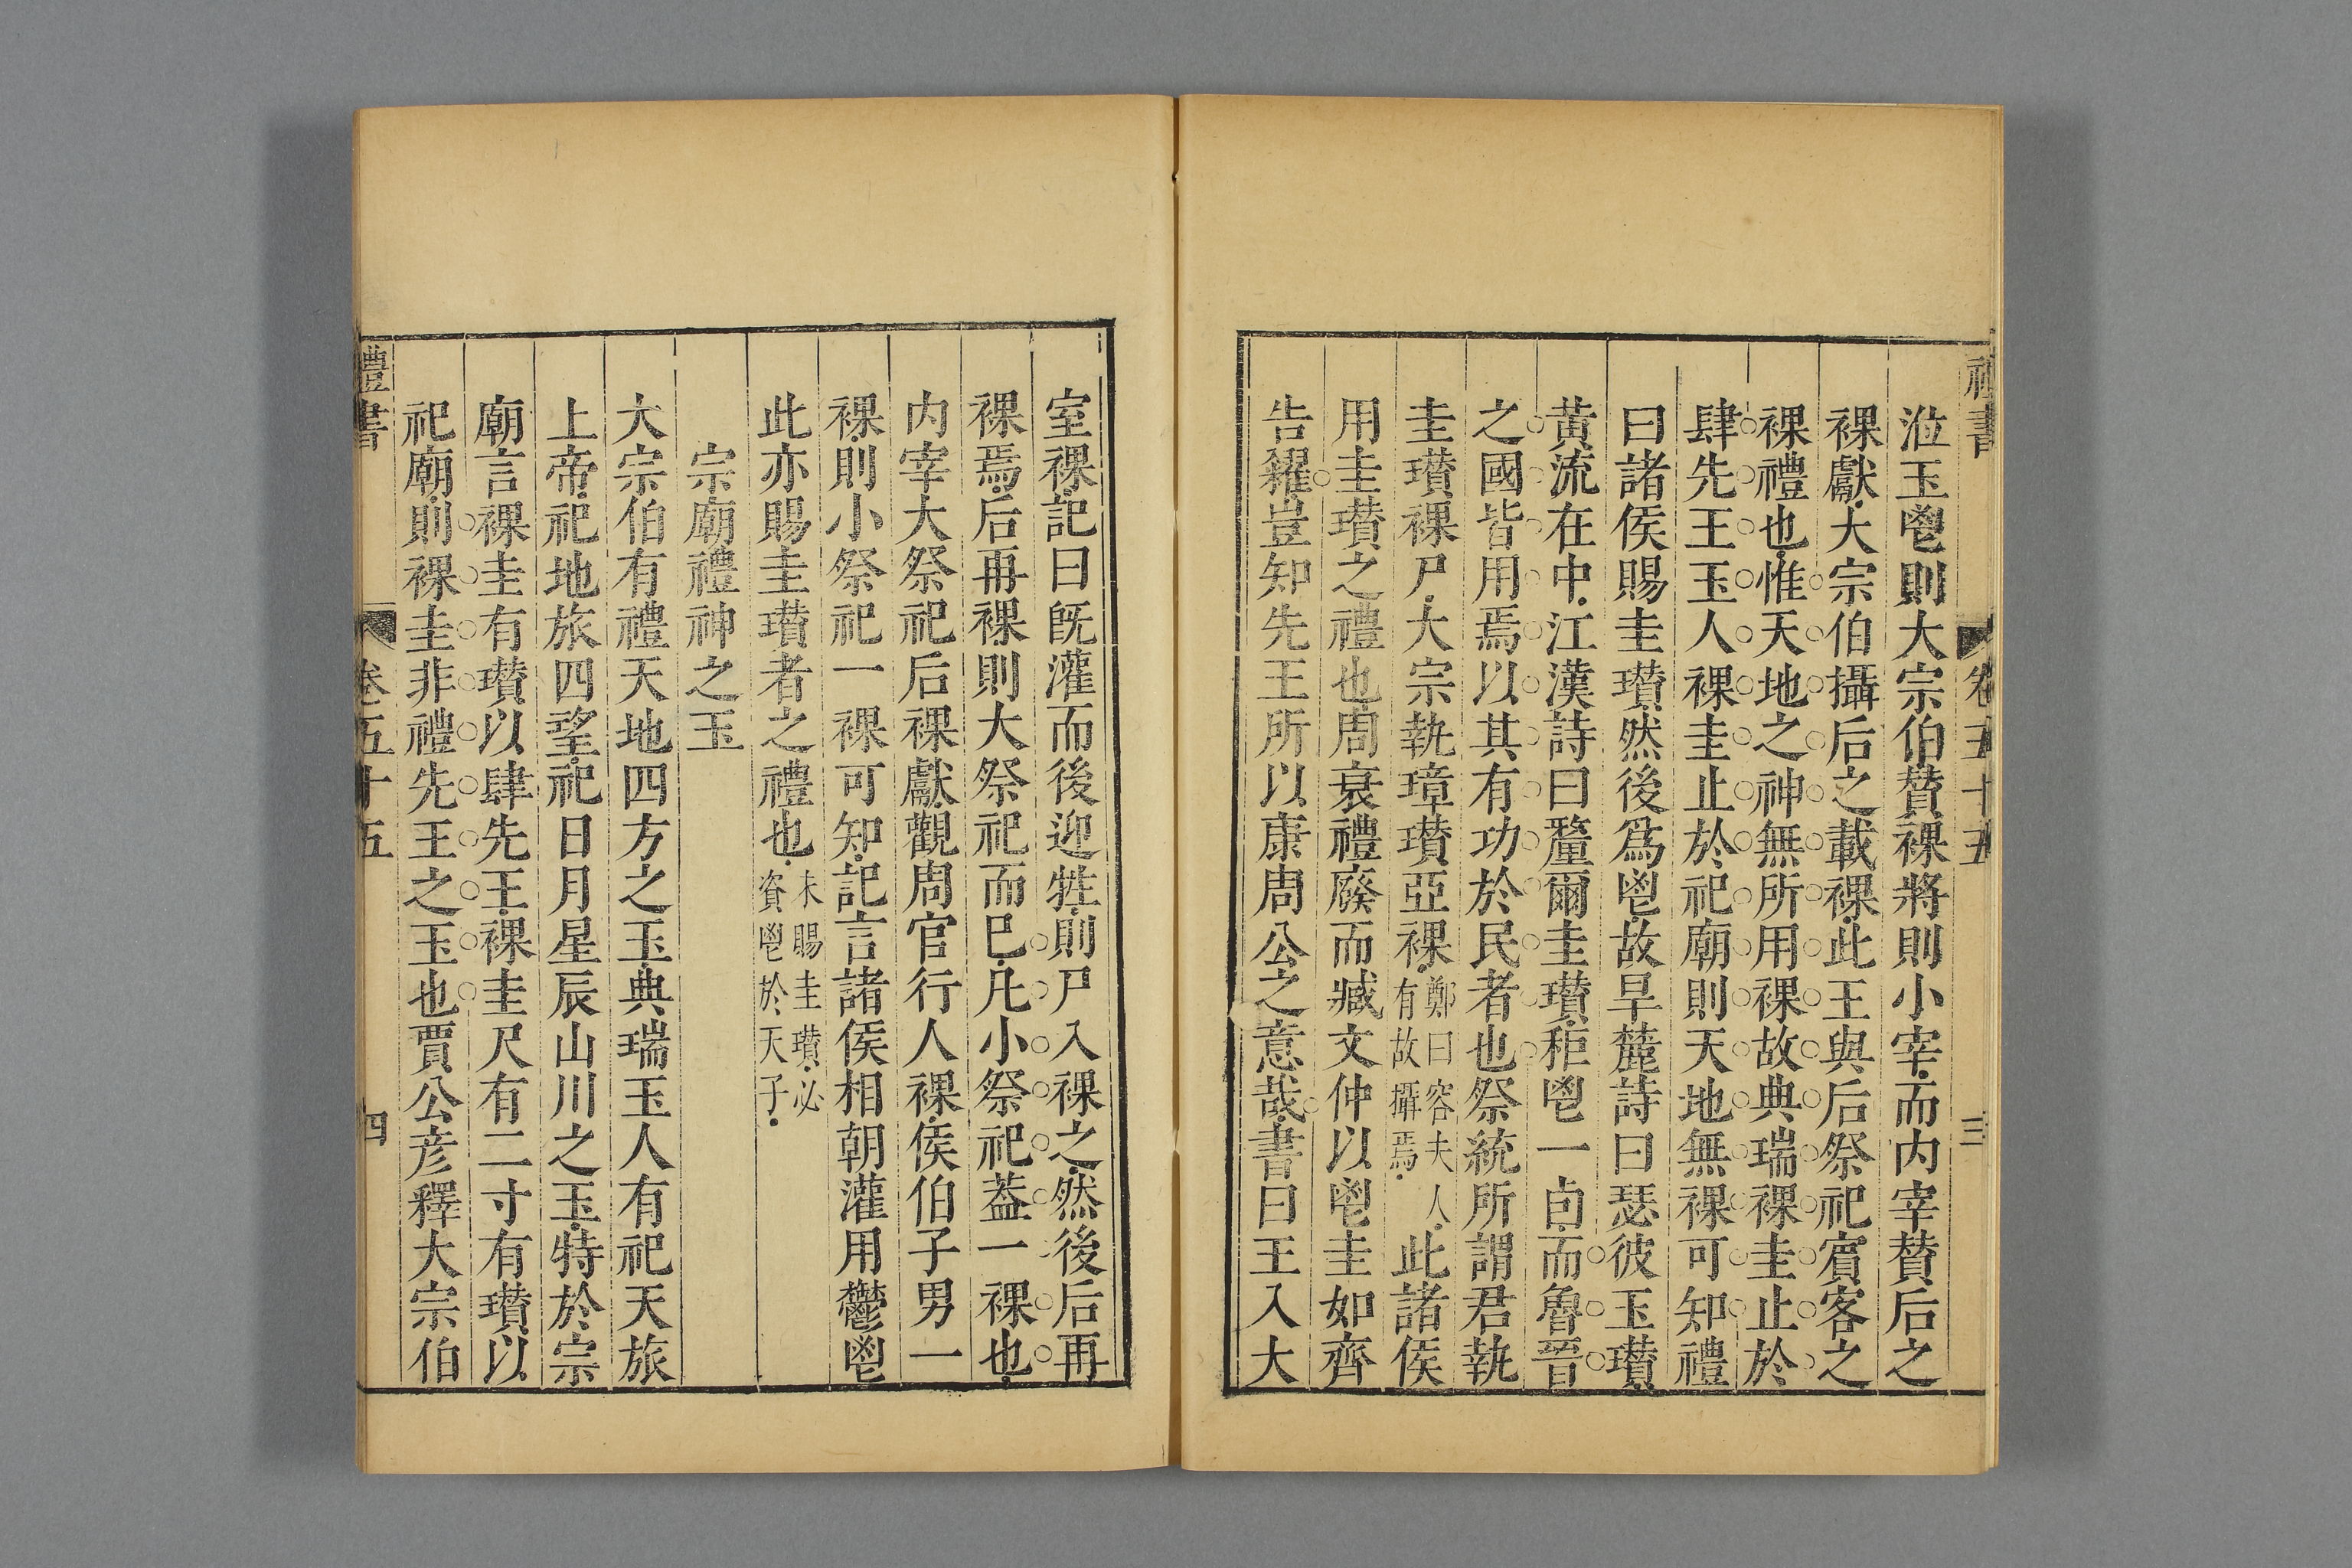 禮書
卷五十五
三
涖玉鬯則大宗伯贊祼將則小宰而内宰贊后之
祼獻大宗伯攝后之載祼此王與后祭祀賓客之
祼禮也惟天地之神無所用祼故典瑞祼圭止於
肆先王玉人祼圭止於祀廟則天地無祼可知禮
曰諸侯賜圭瓚然後爲鬯故旱麓詩曰瑟彼玉瓚
黄流在中江漢詩曰釐爾圭瓚秬鬯一卣而魯晉
之國皆用焉以其有功於民者也祭統所謂君執
圭瓚祼尸大宗執璋瓚亞祼鄭曰容夫人有故攝焉此諸侯
用圭瓚之禮也周衰禮廢而臧文仲以鬯圭如齊
告糴豈知先王所以康周公之意哉書曰王入大
室祼記曰旣灌而後迎牲則尸入祼之然後后再
祼焉后再祼則大祭祀而巳凡小祭祀葢一祼也
内宰大祭祀后祼獻觀周官行人祼侯伯子男一
祼則小祭祀一祼可知記言諸侯相朝灌用鬱鬯
此亦賜圭瓚者之禮也未賜圭瓚必資鬯於天子
宗廟禮神之玉
大宗伯有禮天地四方之玉典瑞玉人有祀天旅
上帝祀地旅四望祀日月星辰山川之玉特於宗
廟言祼圭有瓚以肆先王祼圭尺有二寸有瓚以
祀廟則祼圭非禮先王之玉也賈公彦釋大宗伯
禮書
卷五十五
四